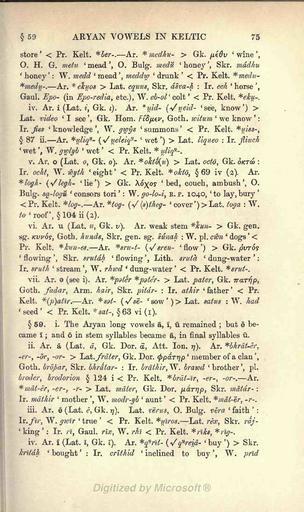 § 59 ARYAN VOWELS IN KELTIC 75
store' < Pr. Kelt. *ber-.—Ar. *medhu- > Gk. μέθυ 'wine',
O. H. G. metu 'mead', O. Bulg. medŭ 'honey', Skr. mádhu
'honey': W. medd 'mead', meddw 'drunk' < Pr. Kelt. *medu-
*medy̯-.—Ar. *eḱu̯os > Lat. equus, Skr. áśva-ḥ : Ir. ech 'horse',
Gaul. Epo- (in Epo-redia, etc.), W. eb-ol 'colt' < Pr. Kelt. *eku̯-.
iv. Ar. i (Lat. i, Gk. ι). Ar. *u̯id- (√u̯eid- 'see, know') >
Lat. video 'I see', Gk. Hom. ϝίδμεν, Goth. witum 'we know':
Ir. fiss 'knowledge', W. gwŷs 'summons' < Pr. Kelt. *u̯iss-,
§ 87 ii.—Ar. *u̯liq- (√u̯eleiq- 'wet') > Lat. liqueo : Ir. fliuch
'wet', W. gwlyb 'wet' < Pr. Kelt. *u̯liq-.
v. Ar. o (Lat. o, Gk. ο). Ar. *oḱtō(u) > Lat. octō, Gk. ὀκτώ:
Ir. ocht, W. wyth 'eight' < Pr. Kelt. *oktō, § 69 iv (2). Ar.
*logh- (√legh- 'lie') > Gk. λόχος 'bed, couch, ambush', O.
Bulg. są-logŭ 'consors tori': W. go-lo-i, B.P. 1040, 'to lay, bury'
< Pr. Kelt. *log-.—Ar. *tog- (√(s)theg- 'cover') > Lat. toga : W.
to 'roof', § 104 ii (2).
vi. Ar. u (Lat. u, Gk. υ). Ar. weak stem *ḱun- > Gk. gen.
sg. κυνός, Goth. hunds, Skr. gen. sg. śúnaḥ : W. pl. cŵn 'dogs' <
Pr. Kelt. *kun-es.—Ar. *sru-t- (√sreu- 'flow') > Gk. ῥυτός
'flowing', Skr. srutáḥ 'flowing', Lith. srutà 'dung-water':
Ir. sruth 'stream', W. rhwd 'dung-water' < Pr. Kelt. *srut-.
vii. Ar. ə (see i). Ar. *pətḗr *pətér- > Lat. pater, Gk. πατήρ,
Goth. fadar, Arm. hair, Skr. pitár- : Ir. athir 'father' < Pr.
Kelt. *(p)atīr.—Ar. *sət- (√sē- 'sow') > Lat. satus : W. had
'seed' < Pr. Kelt. *sat-, § 63 vi (1).
§ 59. i. The Aryan long vowels ā, ī, ū remained ; but ē
became ī ; and ō in stem syllables became ā, in final syllables ū.
ii. Ar. ā (Lat. ā, Gk. Dor. ᾱ, Att. Ion. η). Ar. *bhrā́tēr,
-er-, -ōr, -or- > Lat. frāter, Gk. Dor. φράτηρ 'member of a clan',
Goth. brōþar, Skr. bhrátar- : Ir. bráthir, W. brawd 'brother', pl.
broder, brodorion § 124 i < Pr. Kelt. *brāt-īr, -er-, -or-.—Ar.
*mātér, -er-, -r- > Lat. māter, Gk. Dor. μάτηρ, Skr. mātár- :
Ir. máthir 'mother', W. modr-yb 'aunt' < Pr. Kelt. *māt-ēr, -r-.
iii. Ar. ē (Lat. ē, Gk. η). Lat. vērus, O. Bulg. věra 'faith':
Ir. fír, W. gwir 'true' < Pr. Kelt. *u̯īros.—Lat. rēx, Skr. ráj-
'king': Ir. rí, Gaul. rīx, W. rhi < Pr. Kelt. *rīks, *rīg-.
iv. Ar. ī (Lat. ī, Gk. ῑ). Ar. *qrīt- (√qreiā- 'buy') > Skr.
krītáḥ 'bought' : Ir. críthid 'inclined to buy', W. prid
Digitized by Microsoft ®